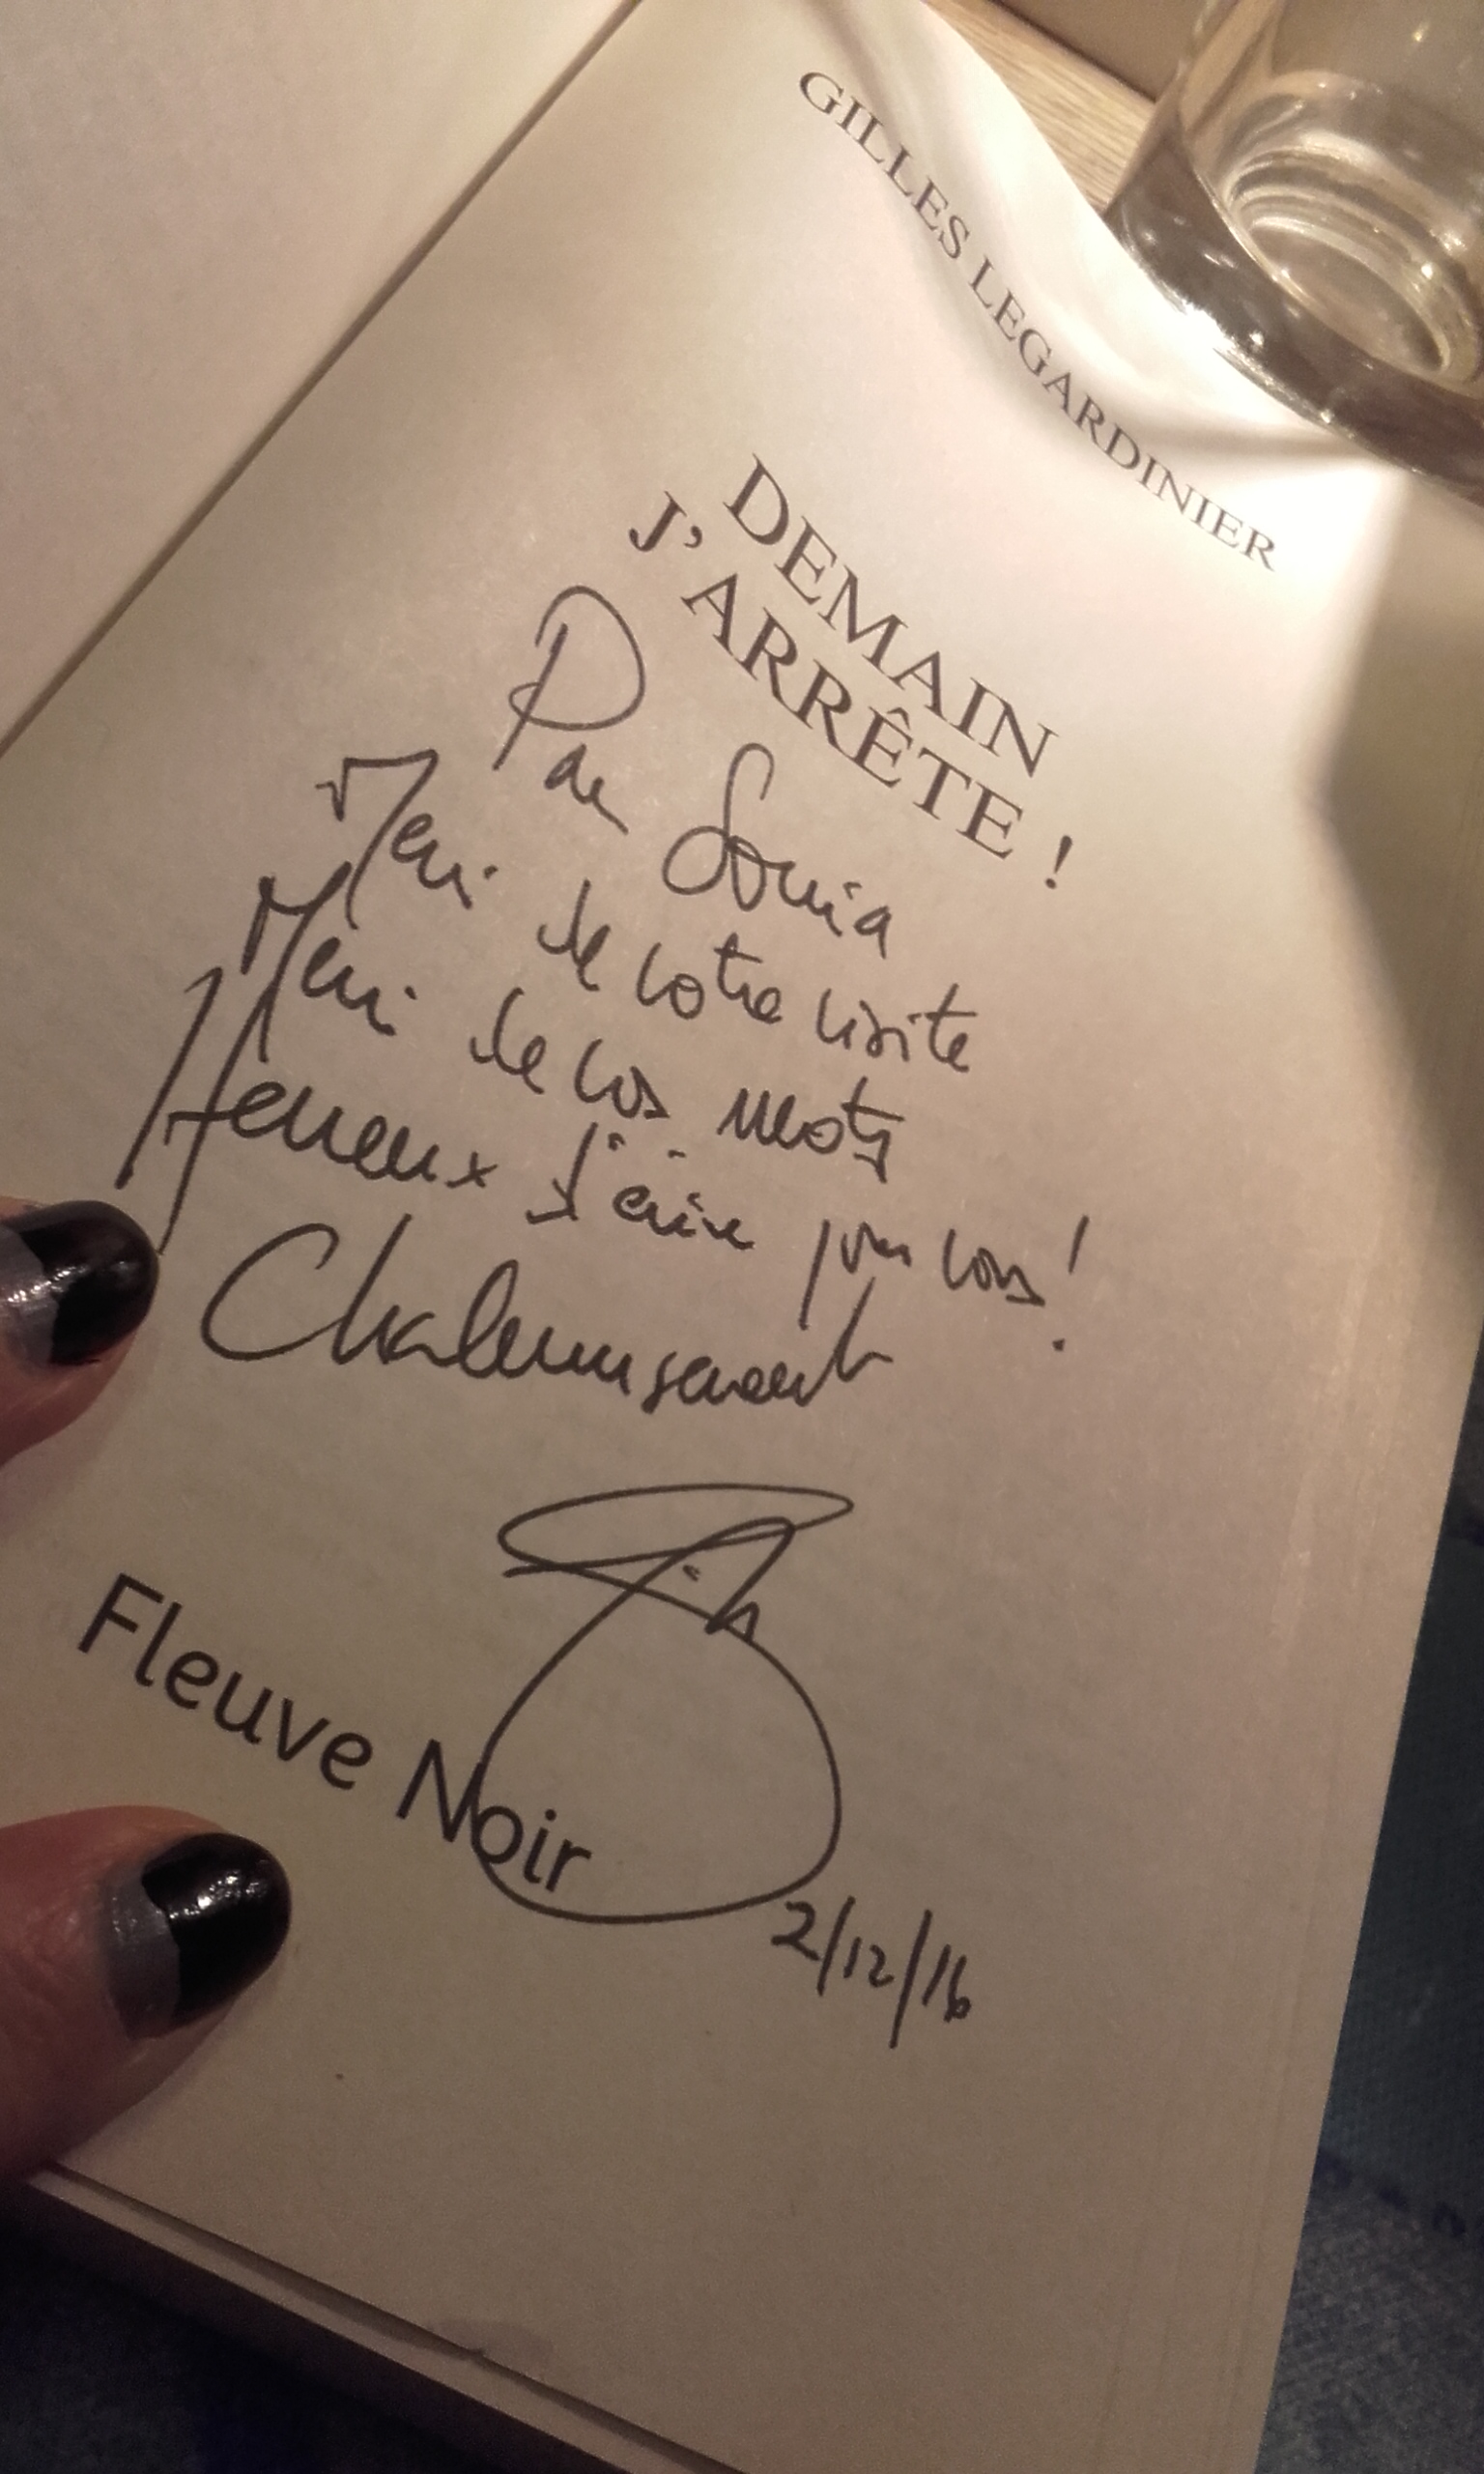 GILLES LEGARDINIER
DEMAIN
J'ARRÊTE !
Pour Sonia
Merci de votre visite
Merci de vos mots
Heureux d'écrire pour vous !
Chaleureusement
Fleuve Noir
2/12/16